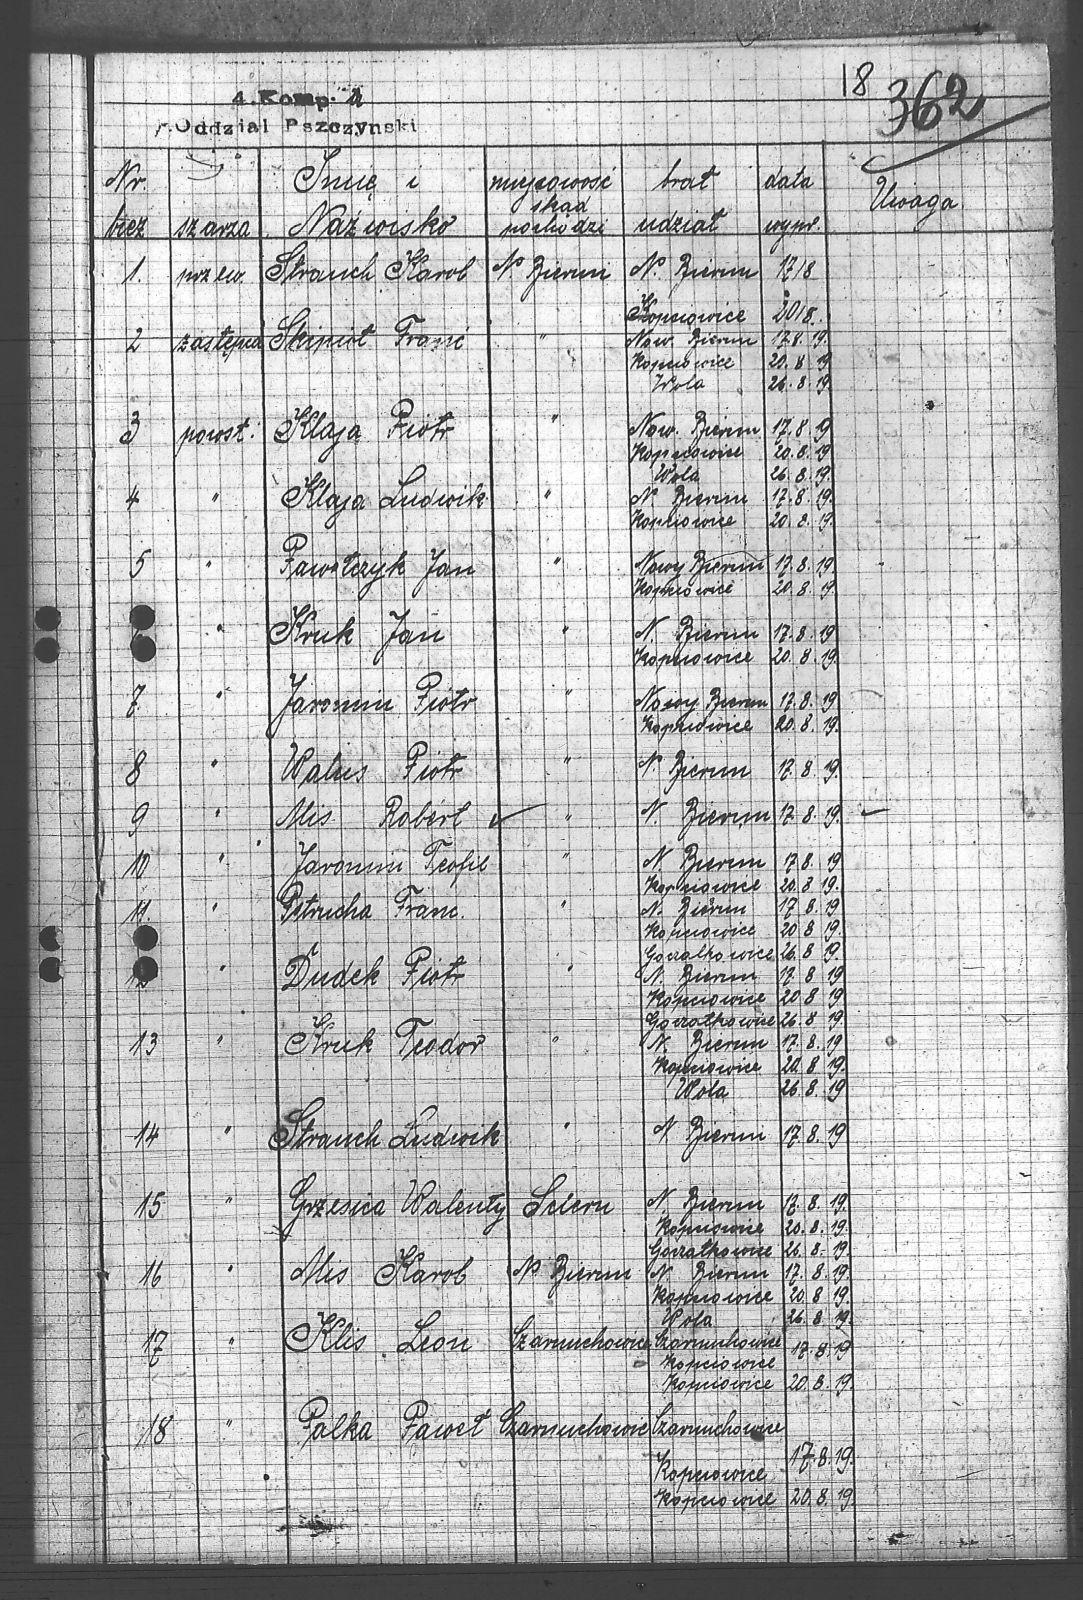 18 362
4. Komp.
Oddział Pszczynski
Nr. Imię i mijscowość brał data Uwaga
bież szarża Nazwisko skąd pochodzi udział wypr.
1. przew. Strauch Karol N. Bieruń N. Bieruń 17/8
Kopciowice 20/8.
2 zastępca Skipioł Franc " Now. Bieruń 17.8.19.
Kopciowice 20.8.19
Wola 26.8.19.
3 powst. Klaja Piotr " Now. Bieruń 17.8.19
Kopciowice 20.8.19
Wola 26.8.19.
4 " Klaja Ludwik " N. Bieruń 17.8.19.
Kopciowice 20.8.19.
5 " Pawełczyk Jan " Nowy Bieruń 17.8.19
Kopciowice 20.8.19.
" Kruk Jan " N. Bieruń 17.8.19
Kopciowice 20.8.19.
7. " Jaromin Piotr " Nowy Bieruń 17.8.19
Kopciowice 20.8.19.
8 " Walus Piotr " N. Bieruń 17.8.19.
9 " Mis Robert " N. Bieruń 17.8.19.
10 " Jaromin Teofil " N. Bieruń 17.8.19
Kopciowice 20.8.19.
11. " Petrucha Franc. " N. Bieruń 17.8.19
Kopciowice 20.8.19.
Gorzatkowice 26.8.19.
12 " Dudek Piotr " N. Bieruń 17.8.19
Kopciowice 20.8.19.
Gorzatkowice 26.8.19
13 " Kruk Teodor " N. Bieruń 17.8.19
Kopciowice 20.8.19.
Wola 26.8.19
14 " Strauch Ludwik " N Bieruń 17.8.19
15 " Grzesica Walenty Ścierń N. Bieruń 17.8.19.
Kopciowice 20.8.19.
Gorzatkowice 26.8.19.
16 " Mis Karol N. Bieruń N. Bieruń 17.8.19.
Kopciowice 20.8.19.
Wola 26.8.19.
17 " Klis Leon Czarnuchowice Czarnuchowice
Kopciowice 17.8.19
Kopciowice 20.8.19.
18 " Palka Paweł Czarnuchowic Czarnuchowice
Kopciowice 17.8.19.
Kopciowice 20.8.19.